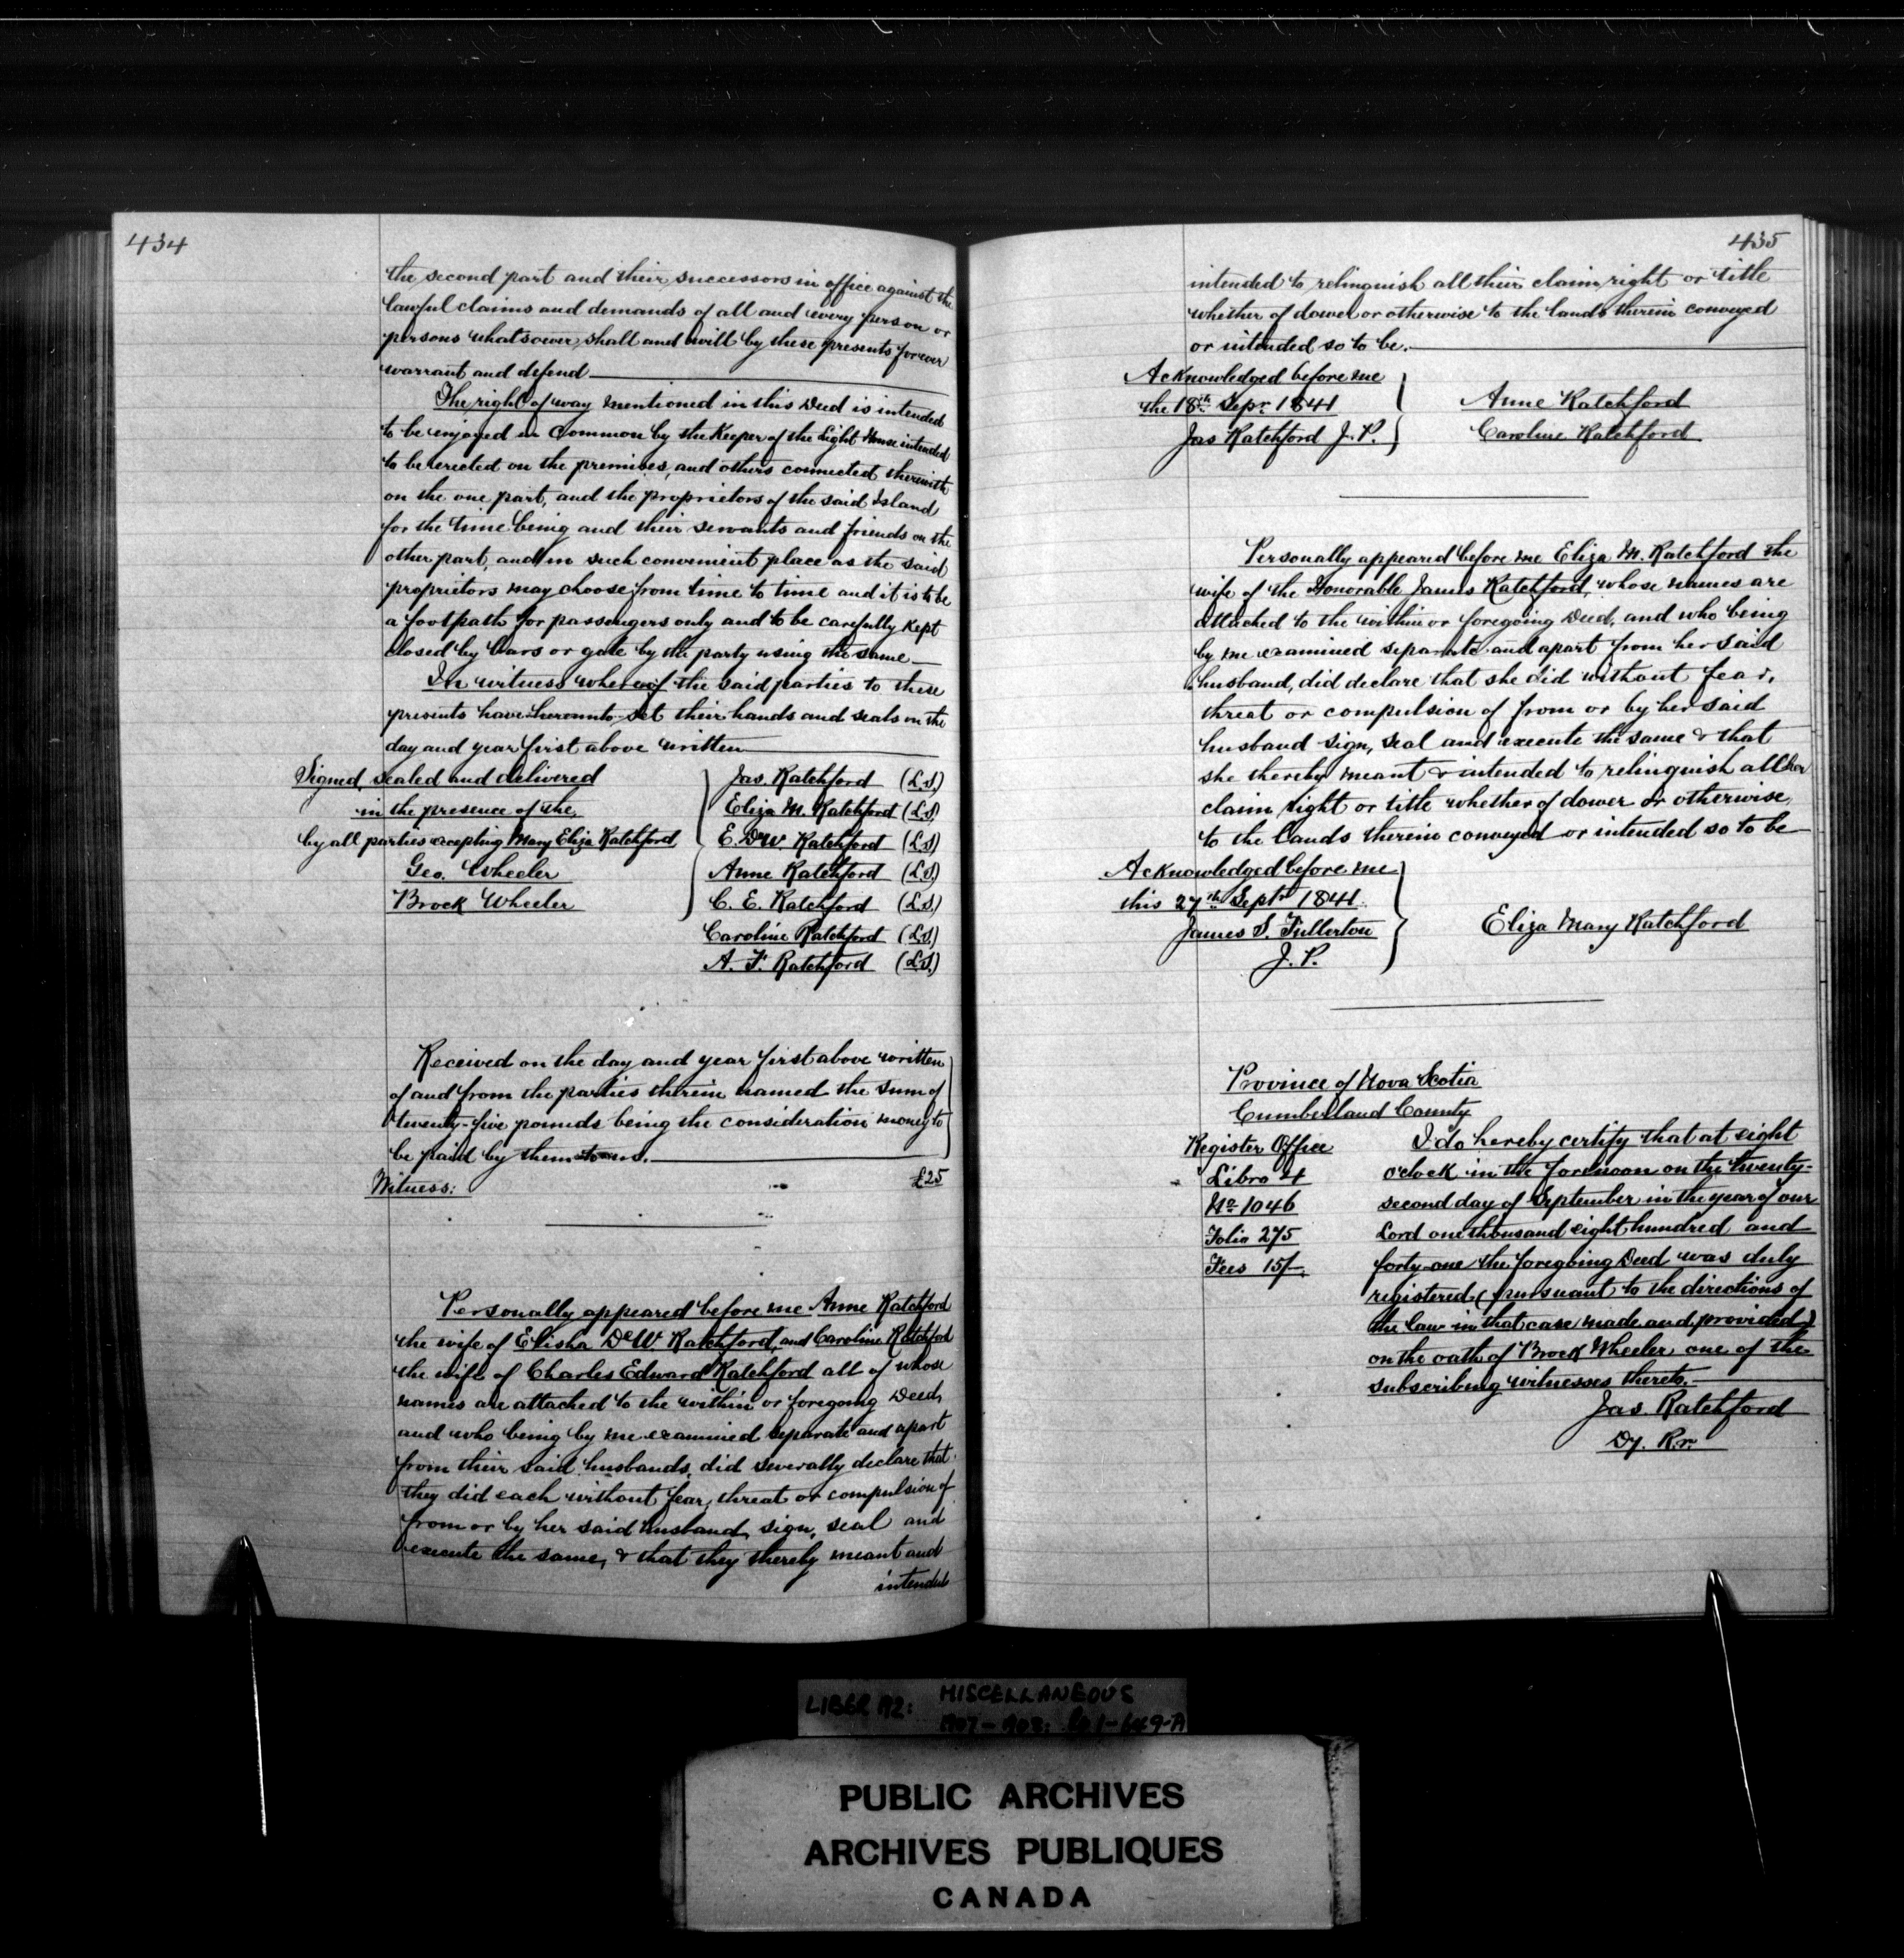 434
the second part and their successors in office against the
lawful claims and demands of all and every person or
persons whatsoever shall and will by these presents forever
warrant and defend
The right of way mentioned in this Deed is intended
to be enjoyed in common by the Keeper of the Light House intended
to be erected on the premises, and others connected therewith
on the one part, and the proprietors of the said Island
for the time being and their servants and friends on the
other part, and in such convenient place as the said
proprietors may choose from time to time and it is to be
a footpath for passengers only and to be carefully kept
closed by bars or gate by the party using the same
In witness whereof the said parties to these
presents have hereunto set their hands and seals on the
day and year first above written
Signed, sealed and delivered
in the presence of the
by all parties excepting Mary Eliza Ratchford
Geo. Wheeler
Brock Wheeler
Jas. Ratchford (L.S.)
Eliza M. Ratchford (L.S)
E. DeW. Ratchford (L.S)
Anne Ratchford (L.S.)
C. E. Ratchford (L.S.)
Caroline Ratchford (L.S)
A. F. Ratchford (L.S.)
Received on the day and year first above written
of and from the parties therein named the sum of
twenty-five pounds being the consideration money to
be paid by them to us.
Witness: £25
Personally appeared before me Anne Ratchford
the wife of Elisha DeW Ratchford, and Caroline Ratchford
the wife of Charles Edward Ratchford all of whose
names are attached to the within or foregoing Deed,
and who being by me examined separate and apart
from their said husbands, did severally declare that
they did each without fear, threat or compulsion of
from or by her said husband, sign, seal and
execute the same, & that they thereby meant and
intended
435
intended to relinquish all their claim right or title
whether of dower or otherwise to the lands therein conveyed
or intended so to be.
Acknowledged before me
the 18th Sepr. 1841
Jas Ratchford J.P.
Anne Ratchford
Caroline Ratchford
Personally appeared before me Eliza M. Ratchford the
wife of the Honorable James Ratchford, whose names are
attached to the within or foregoing Deed, and who being
by me examined separate and apart from her said
husband, did declare that she did without fear,
threat or compulsion of from or by her said
husband sign, seal and execute the same & that
she thereby meant & intended to relinquish all her
claim right or title whether of dower or otherwise,
to the lands therein conveyed or intended so to be
Acknowledged before me
this 27th Sept 1841
James S. Fullerton
J.P.
Eliza Mary Ratchford
Province of Nova Scotia
Cumberland County
Register Office
Libro 4
No 1046
Folio 275
Fees 15/-
I do hereby certify that at eight
o'clock in the forenoon on the twenty-
second day of September in the year of our
Lord one thousand eight hundred and
forty-one the foregoing Deed was duly
registered (pursuant to the directions of
the law in that case made and provided)
on the oath of Brock Wheeler one of the
subscribing witnesses thereto.
Jas. Ratchford
Dy. Rr.
LIBER 192: MISCELLANEOUS
1907-1908:
PUBLIC ARCHIVES
ARCHIVES PUBLIQUES
CANADA